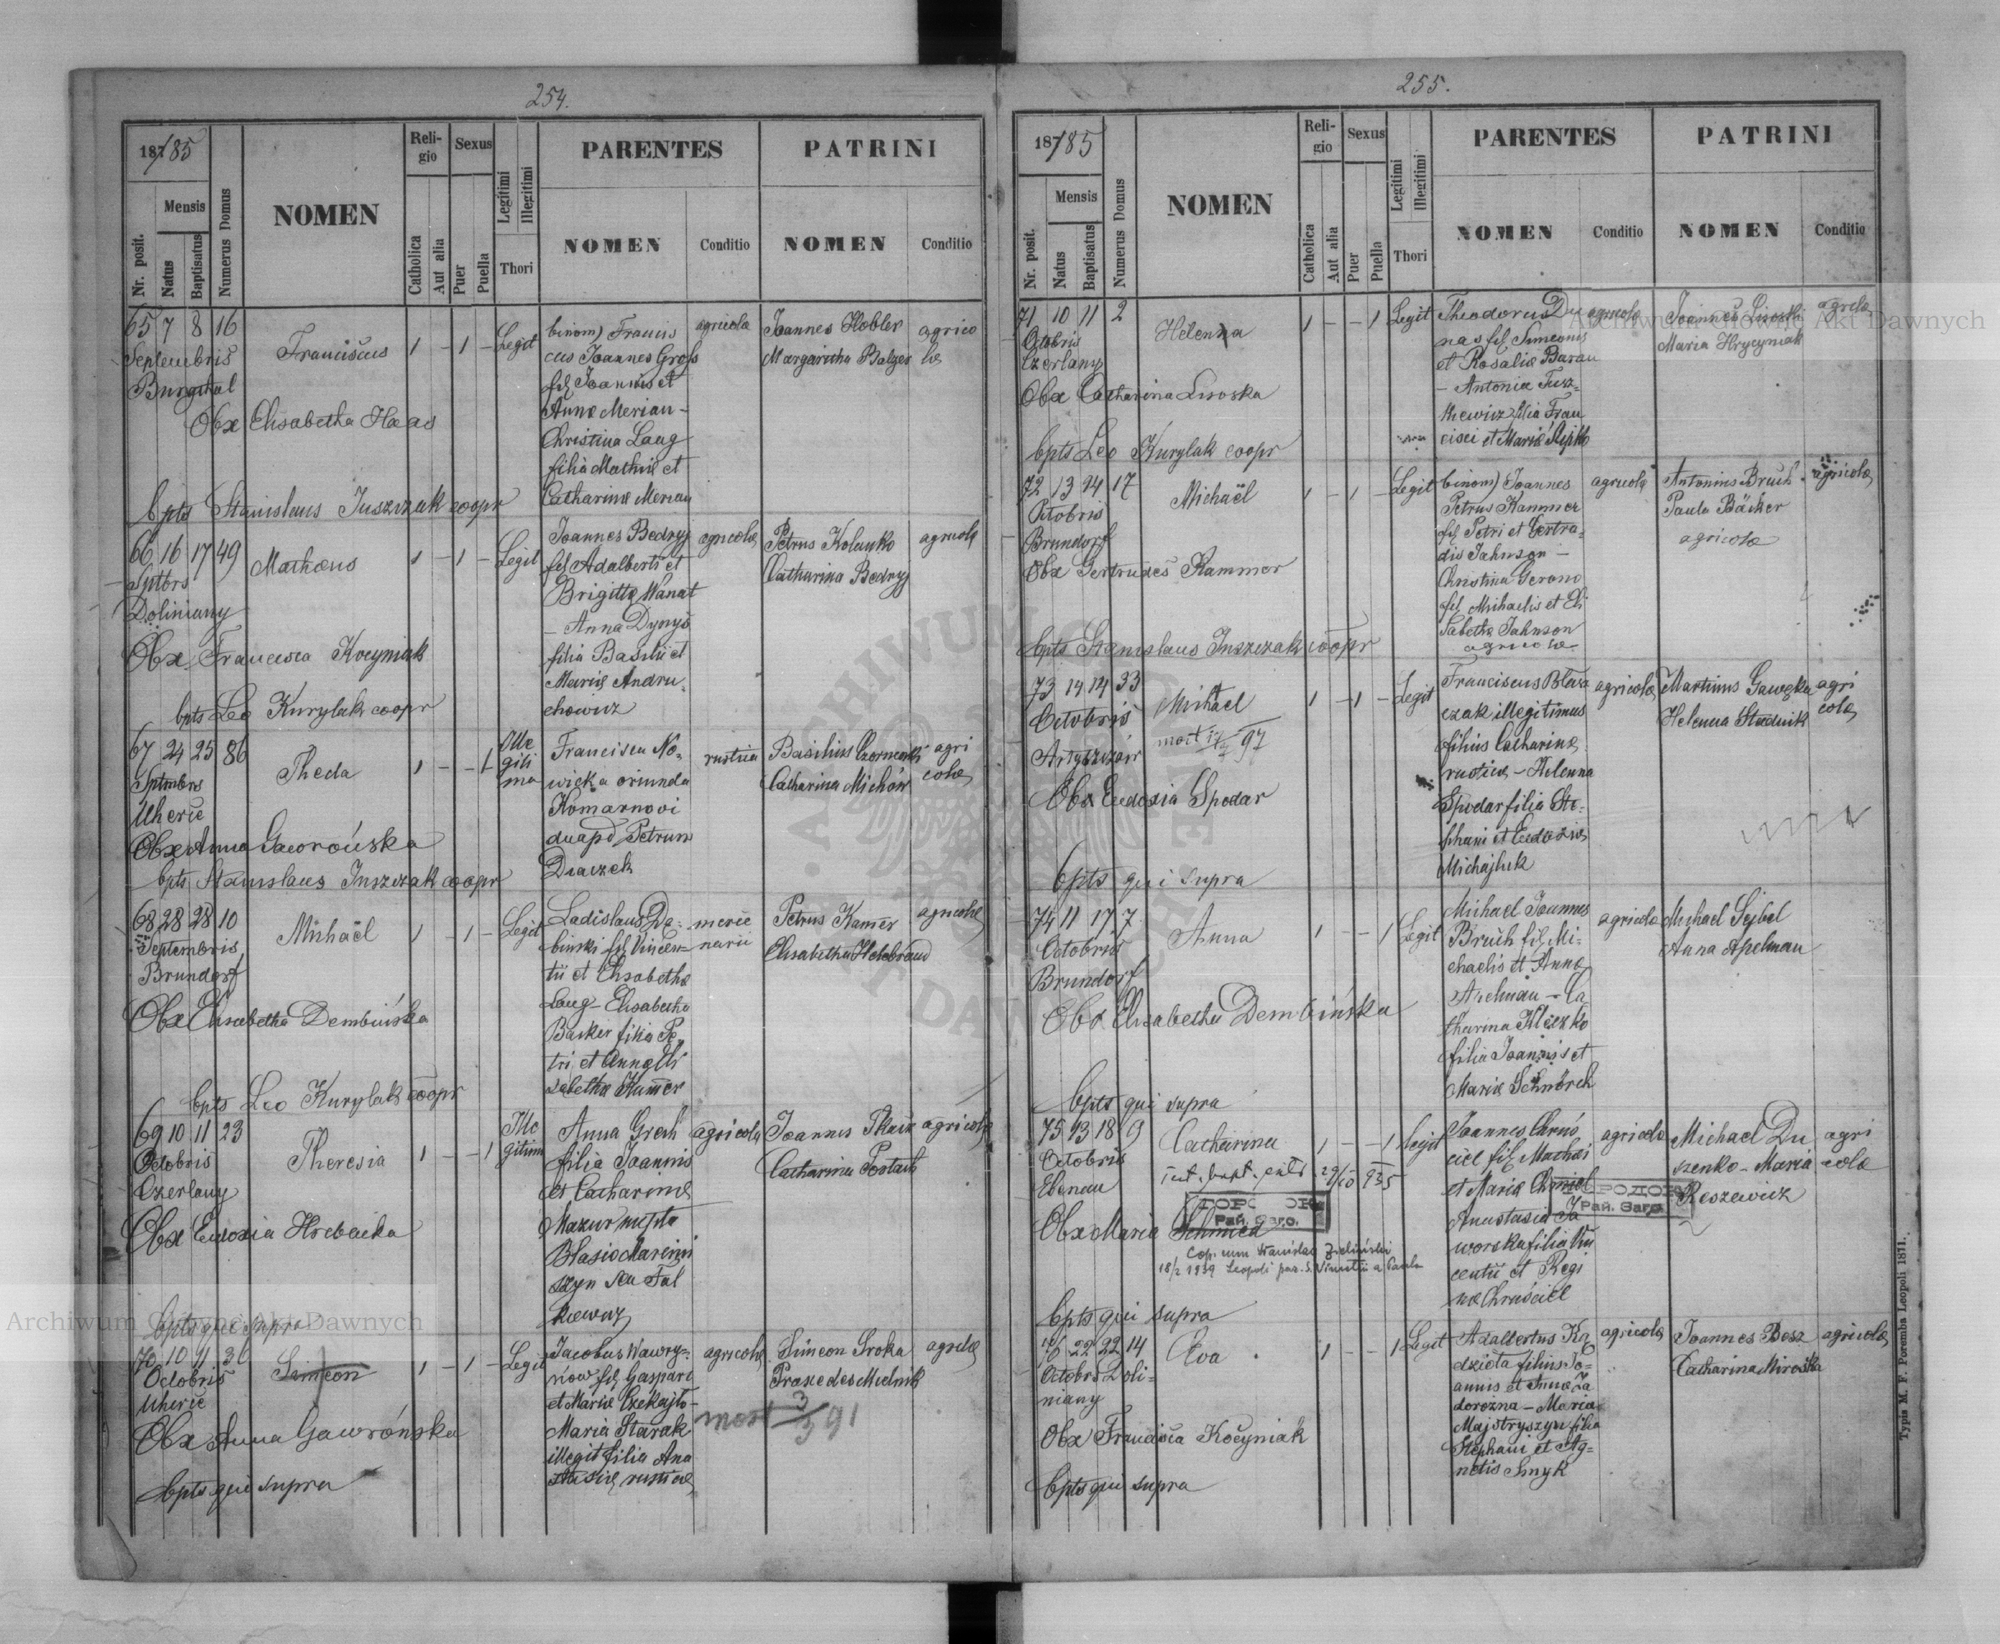 254.
187/85
Nr. posit.
Mensis
Natus
Baptisatus
Numerus Domus
NOMEN
Religio
Catholica
Aut alia
Sexus
Puer
Puella
Legitimi
Illegitimi
Thori
PARENTES
NOMEN
Conditio
PATRINI
NOMEN
Conditio
65 7 8 16
Septembris
Burgthal
Franciscus
1 - 1 - Legit
binom) Francis
cus Joannes Gross
fil Joannis et
Annæ Merian -
Christina Laug
filia Mathiæ et
Catharinæ Merian
agricolæ
Joannes Kobler
Margaritha Balzer
agrico
læ
Obx Elisabetha Haas
bpts Stanislaus Juszczak coopr
66 16 17 49
Septbrs
Doliniany
Mathæus
1 - 1 - Legit
Joannes Bedryj
fil Adalberti et
Brigittæ Wanat
- Anna Dynys
filia Basilii et
Mariæ Andru
chowicz
agricolæ
Petrus Kolanko
Catharina Bedryj
agricolæ
Obx Francisca Kocyniak
bpts Leo Kurylak coopr
67 24 25 86
Septmbrs
Uherce
Theda
1 - - 1
Ille
giti
ma
Francisca No-
wicka oriunda
Komarnovi
Petrum
Draczek
rustica
Basilius
Catharina Michón
agri
colæ
Obx Anna Gaworońska
bpts Stanislaus Juszczak coopr
68 28 28 10
Septembris
Brundorf
Michaël
1 - 1 - Legit
Ladislaus De-
binski fil Vincen
tii et Elisabethæ
Laug - Elisabetha
Backer filia Pe
tri et Annæ Eli
sabethæ Kamer
merce
narii
Petrus Kamer
Elisabetha
agricolæ
Obx Elisabetha Dembińska
bpts Leo Kurylak coopr
69 10 11 23
Octobris
Czerlany
Theresia
1 - - 1
Ille
gitim
Anna Grech
filia Joannis
et Catharinæ
Mazur nupta
Blasio
agricolæ
Joannes Tkacz
Catharina Postach
agricolæ
Obx Eudoxia Hrebeńka
bpts qui supra
70 10 11 36
Octobris
Uherce
Simeon
1 - 1 - Legit
Jacobus Wawry-
fil Gaspari
et Mariæ Czekajło -
Maria Starak
illegit filia Ana
stasiæ rusticæ
agricolæ
Simeon Sroka
Praxedes Mielnik
agricolæ
mort 3/3 91
Obx Anna Gawrońska
bpts qui supra
255.
187/85
Nr. posit.
Mensis
Natus
Baptisatus
Numerus Domus
NOMEN
Religio
Catholica
Aut alia
Sexus
Puer
Puella
Legitimi
Illegitimi
Thori
PARENTES
NOMEN
Conditio
PATRINI
NOMEN
Conditio
71 10 11 2
Octobris
Czerlany
Helena
1 - - 1 Legit
Theodorus Du
nas fil Simeonis
et Rosaliæ Baran
- Antonia
filia Fran
cisci et Mariæ
agricolæ
Joannes Lisoski
Maria Hrycyniak
agrclæ
Obx Catharina Lisoska
bpts Leo Kurylak coopr
72 13 14 17
Octobris
Brundorf
Michaël
1 - 1 - Legit
binom) Joannes
Petrus Kammer
fil Petri et Gertru-
dis Jahnson -
Christina Gerono
fil Michaelis et Eli
sabethæ Jahnson
agricolæ
agricolæ
Antonius Bruch
Paula Bäcker
agricolæ
agricolæ
Obx Gertrudes Kammer
bpts Stanislaus Juszczak coopr
73 14 14 33
Octobris
Artyszczów
Michael
mort 97
1 - 1 - Legit
Franciscus
czak illegitimus
filius Catharinæ
rusticæ - Helenna
Spodar filia Ste-
phani et Eudoxiæ
Michajluk
agricolæ
Martinus Gawęka
Helenna Studnik
agri
colæ
Obx Eudoxia Spodar
bpts qui supra
74 11 17 7
Octobris
Brundorf
Anna
1 - - 1 Legit
Michael Joannes
Bruch fil Mi-
chaelis et Annæ
Apelman - Ca
tharina Kleczko
filia Joannis et
Mariæ Schnörch
agricolæ
Michael Sejbel
Anna Apelman
Obx Elisabetha Dembińska
bpts qui supra
75 13 18 9
Octobris
Ebenau
Catharina
1 - - 1 Legit
29/10 935
ГОРОДОК
Рай. Загс.
Joannes
fil Mathæi
et Mariæ Chmiel
Anastasia Ja
worska filia Vin
centii et Regi
næ Chruściel
agricolæ
Michael Du
szenko - Maria
Reszewicz
agri
colæ
ГОРОДОК
Рай. Загс.
Obx Maria Schmied
Cop. cum Stanislao Zieliński
18/2 1939 Leopoli par. S. Vincentii a Paulo
bpts qui supra
76 22 22 14
Octobris Doli-
niany
Eva
1 - - 1 Legit
Adalbertus Ko
dziota filius Jo-
annis et Annæ Za
dorozna - Maria
Majstryszyn filia
Stephani et Ag-
netis Smyk
agricolæ
Joannes Bosz
Catharina Mirośka
agricolæ
Obx Francisca Kocyniak
bpts qui supra
Typis M. F. Poremba Leopoli 1871.
Archiwum Główne Akt Dawnych
Archiwum Główne Akt Dawnych